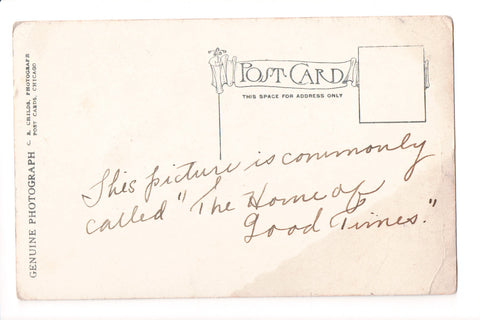 GENUINE PHOTOGRAPH C. R. CHILDS, PHOTOGRAPH
POST CARDS, CHICAGO
POST CARD
THIS SPACE FOR ADDRESS ONLY
This picture is commonly
called "The Home of
Good Times."